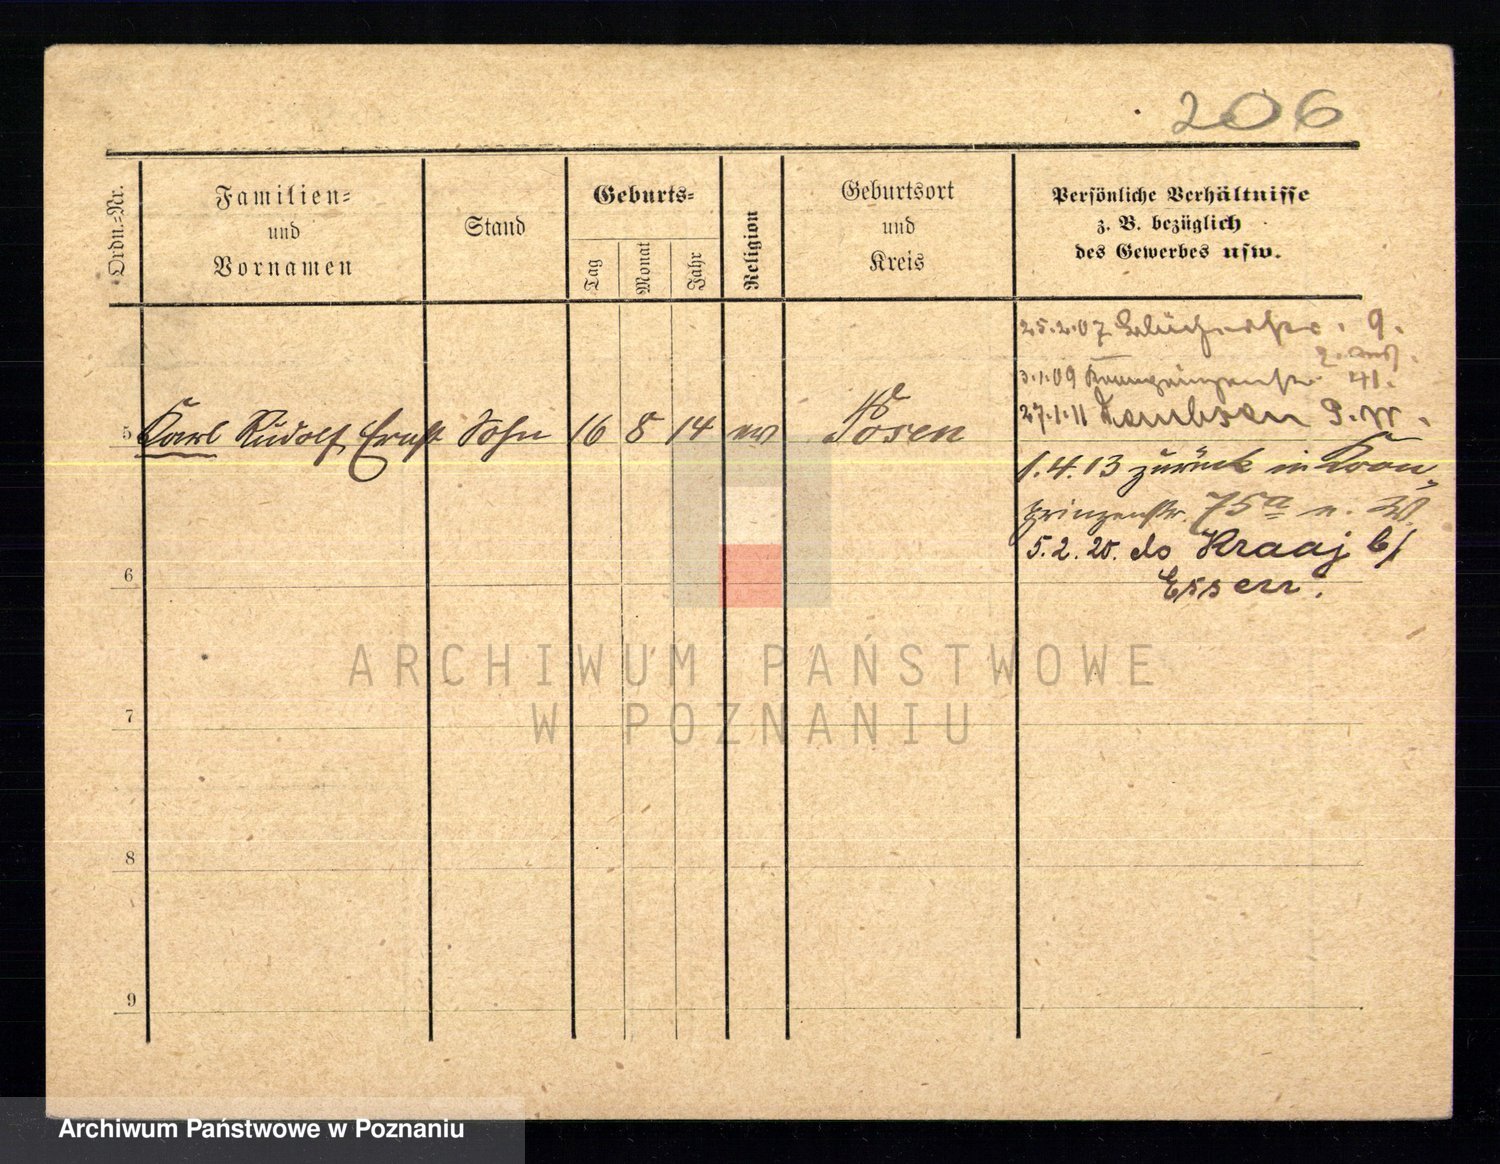 206
Ordn.-Nr.
Familien-
und
Vornamen
Stand
Geburts-
Tag
Monat
Jahr
Religion
Geburtsort
und
Kreis
Persönliche Verhältnisse
z. B. bezüglich
des Gewerbes usw.
25.2.07 Blücherstr. 9.
3.1.09 Kronprinzenstr. 41.
27.1.11
5 Karl Rudolf Ernst Sohn 16 8 14 ev Posen
1.4.13 zurück in Kron-
prinzenstr. 75a
5.2.20. do Kraaj b/
Essen.
6
7
8
9
ARCHIWUM PAŃSTWOWE
W POZNANIU
Archiwum Państwowe w Poznaniu